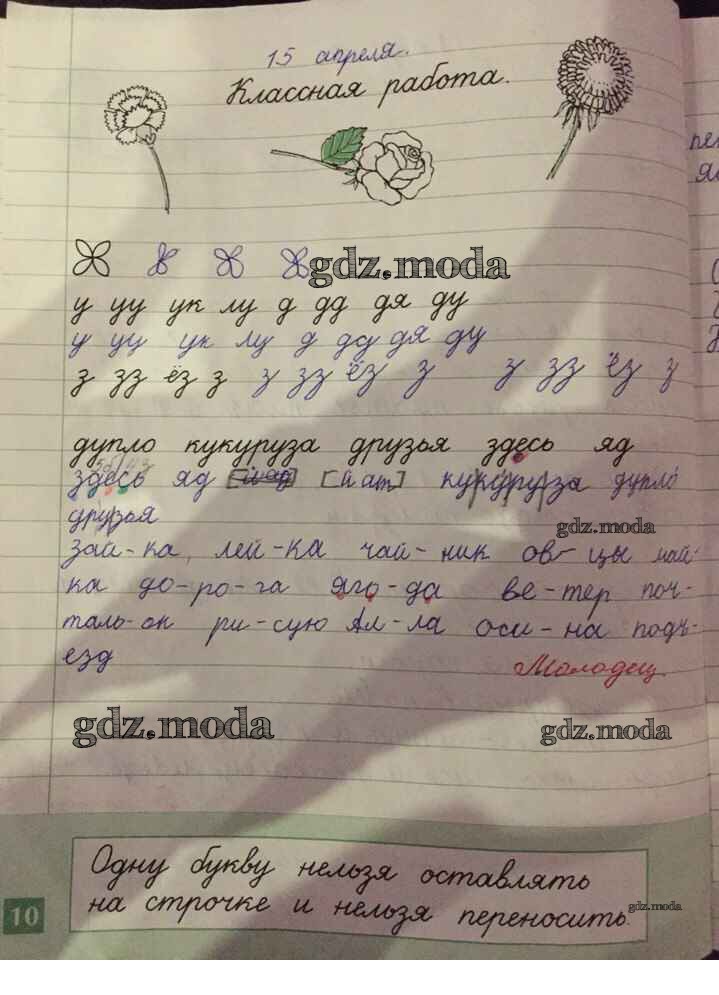 15 апреля.
Классная работа.
gdz.moda
у уу ук лу д дд дя ду
у уу ук лу д дд дя ду
з зз ёз з з зз ёз з з зз ёз з
дупло кукуруза друзья здесь яд
здесь яд [йат] кукуруза дупло
друзья
gdz.moda
зай-ка, лей-ка чай-ник ов-цы май-
ка до-ро-га яго-да ве-тер поч-
таль-он ри-сую Ал-ла оси-на подъ-
езд
Молодец.
gdz.moda
gdz.moda
Одну букву нельзя оставлять
на строчке и нельзя переносить.
gdz.moda
10